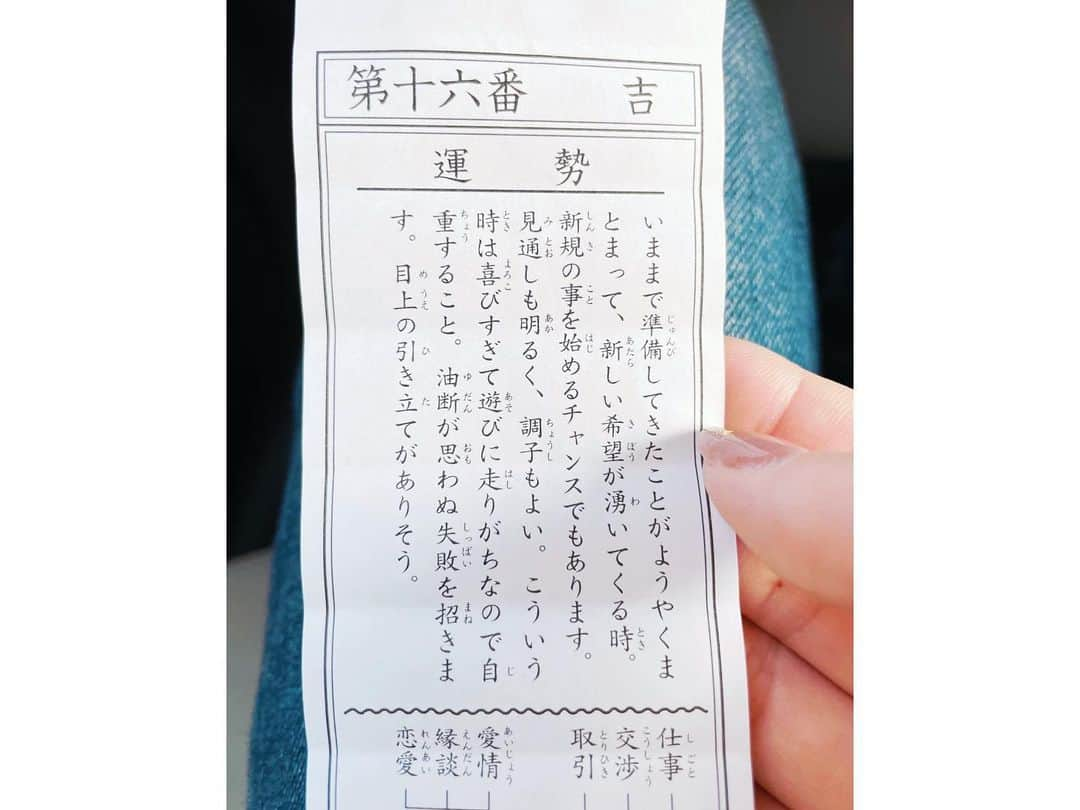 第十六番 吉
運勢
いままで準備してきたことがようやくま
とまって、新しい希望が湧いてくる時。
新規の事を始めるチャンスでもあります。
見通しも明るく、調子もよい。こういう
時は喜びすぎて遊びに走りがちなので自
重すること。油断が思わぬ失敗を招きま
す。目上の引き立てがありそう。
仕事
交渉
取引
愛情
縁談
恋愛